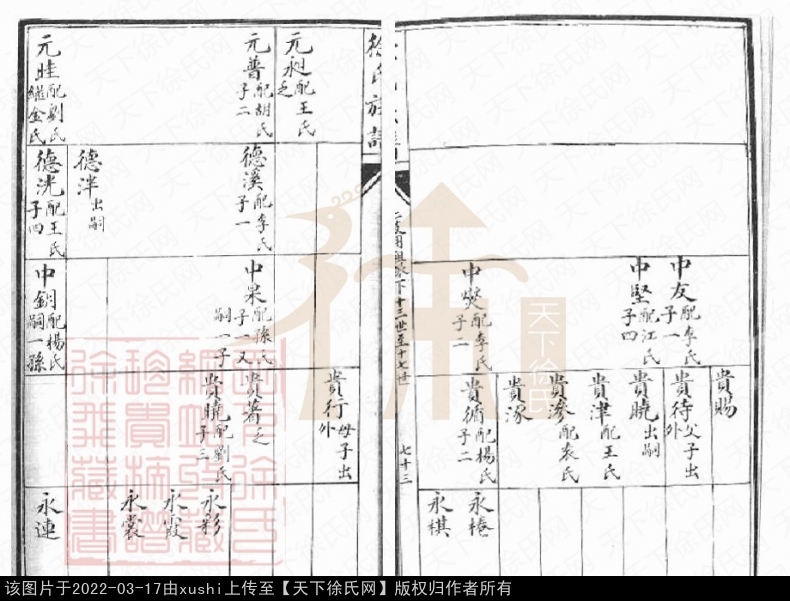 中友配李氏子一
中堅配江氏子四
中焚配李氏子二
貴賜
貴待父子出外
貴曉出嗣
貴津配王氏
貴滲配袁氏
貴涿
貴彌配楊氏子二
永椿
永棋
七十三
徐氏族譜
元昶配王氏乏
元普配胡氏子二
元畦配劉氏繼金氏
德溪配李氏子一
德泮出嗣
德洸配王氏子四
中杲配孫氏子一又嗣一子
中鈅配楊氏嗣一孫
貴行母子出外
貴著乏
貴曉配劉氏子三
永彩
永霞
永裳
永連
天下徐氏
该图片于2022-03-17由xushi上传至【天下徐氏网】版权归作者所有